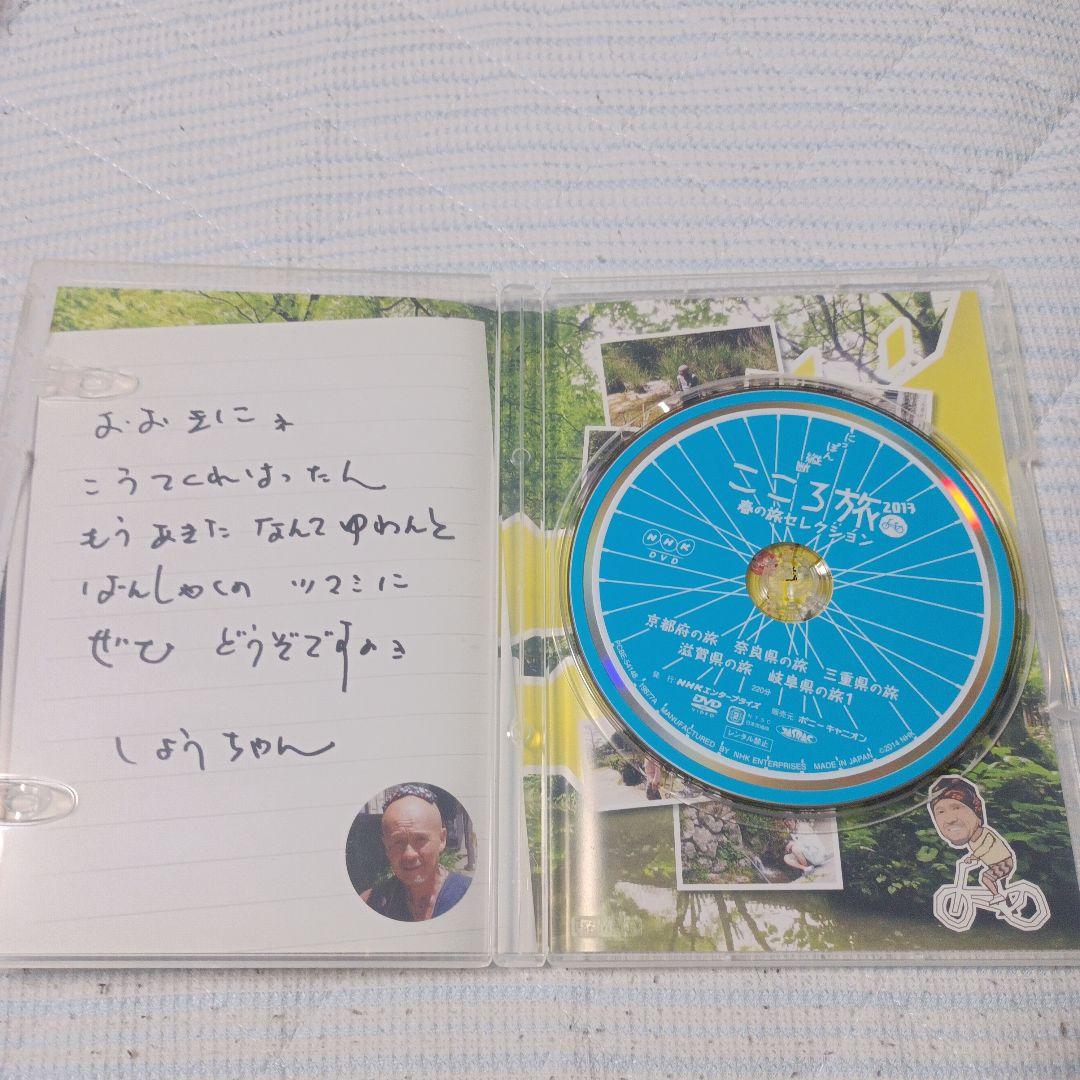 おおきにぇ
こうてくれはったん
もうあきた なんて ゆわんと
ばんしゃくの ツマミに
ぜひ どうぞですよぅ
しょうちゃん
にっぽん
縦断
こころ旅
2013
春の旅セレクション
NHK
DVD
京都府の旅 奈良県の旅 三重県の旅
滋賀県の旅 岐阜県の旅1
発 行:NHKエンタープライズ 220分 販売元 ポニーキャニオン
DVD
VIDEO
2
NTSC
日本市場向
JASRAC
レンタル禁止
PCBE-54148 19877A MANUFACTURED BY NHK ENTERPRISES MADE IN JAPAN ©2014 NHK